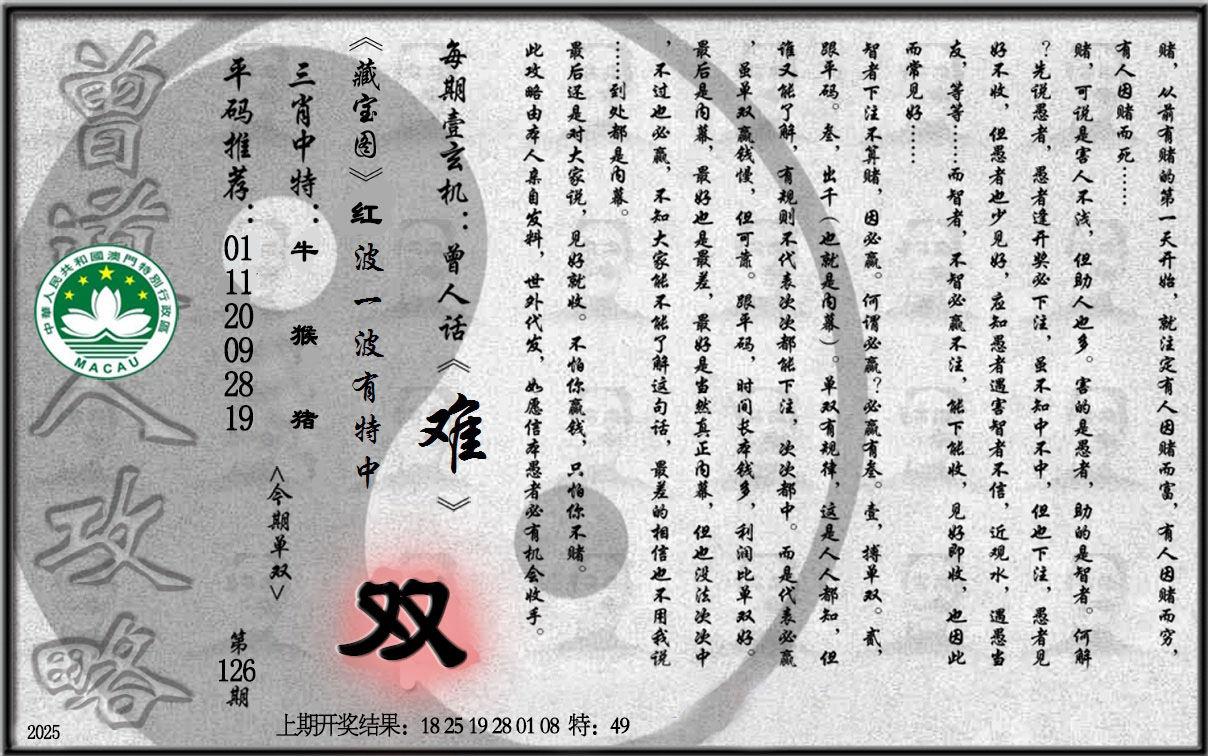 赌，从前有赌的第一天开始，就注定有人因赌而富，有人因赌而穷，
有人因赌而死……
赌，可说是害人不浅，但助人也多。害的是愚者，助的是智者。何解
？先说愚者，愚者逢开奖必下注，虽不知中不中，但也下注，愚者见
好不收，但愚者也少见好，应知愚者遇害智者不信，近观水，遇愚当
友，等等……而智者，不智必赢不注，能下能收，见好即收，也因此
而常见好……
智者下注不算赌，因必赢。何谓必赢？必赢有叁。壹，搏单双。贰，
跟平码。叁，出千（也就是内幕）。单双有规律，这是人人都知，但
谁又能了解，有规则不代表次次都能下注，次次都中。而是代表必赢
，虽单双赢钱慢，但可靠。跟平码，时间长本钱多，利润比单双好。
最后是内幕，最好也是最差，最好是当然真正内幕，但也没法次次中
，不过也必赢，不知大家能不能了解这句话，最差的相信也不用我说
……到处都是内幕。
最后还是对大家说，见好就收。不怕你赢钱，只怕你不赌。
此攻略由本人亲自发料，世外代发，如愿信本愚者必有机会收手。
每期壹玄机：曾人话《难》
《藏宝图》红波一波有特中
双
三肖中特：牛 猴 猪
<今期单双>
平码推荐：01 11 20 09 28 19
第126期
曾道人攻略
中華人民共和國澳門特別行政區
MACAU
上期开奖结果：18 25 19 28 01 08 特：49
2025